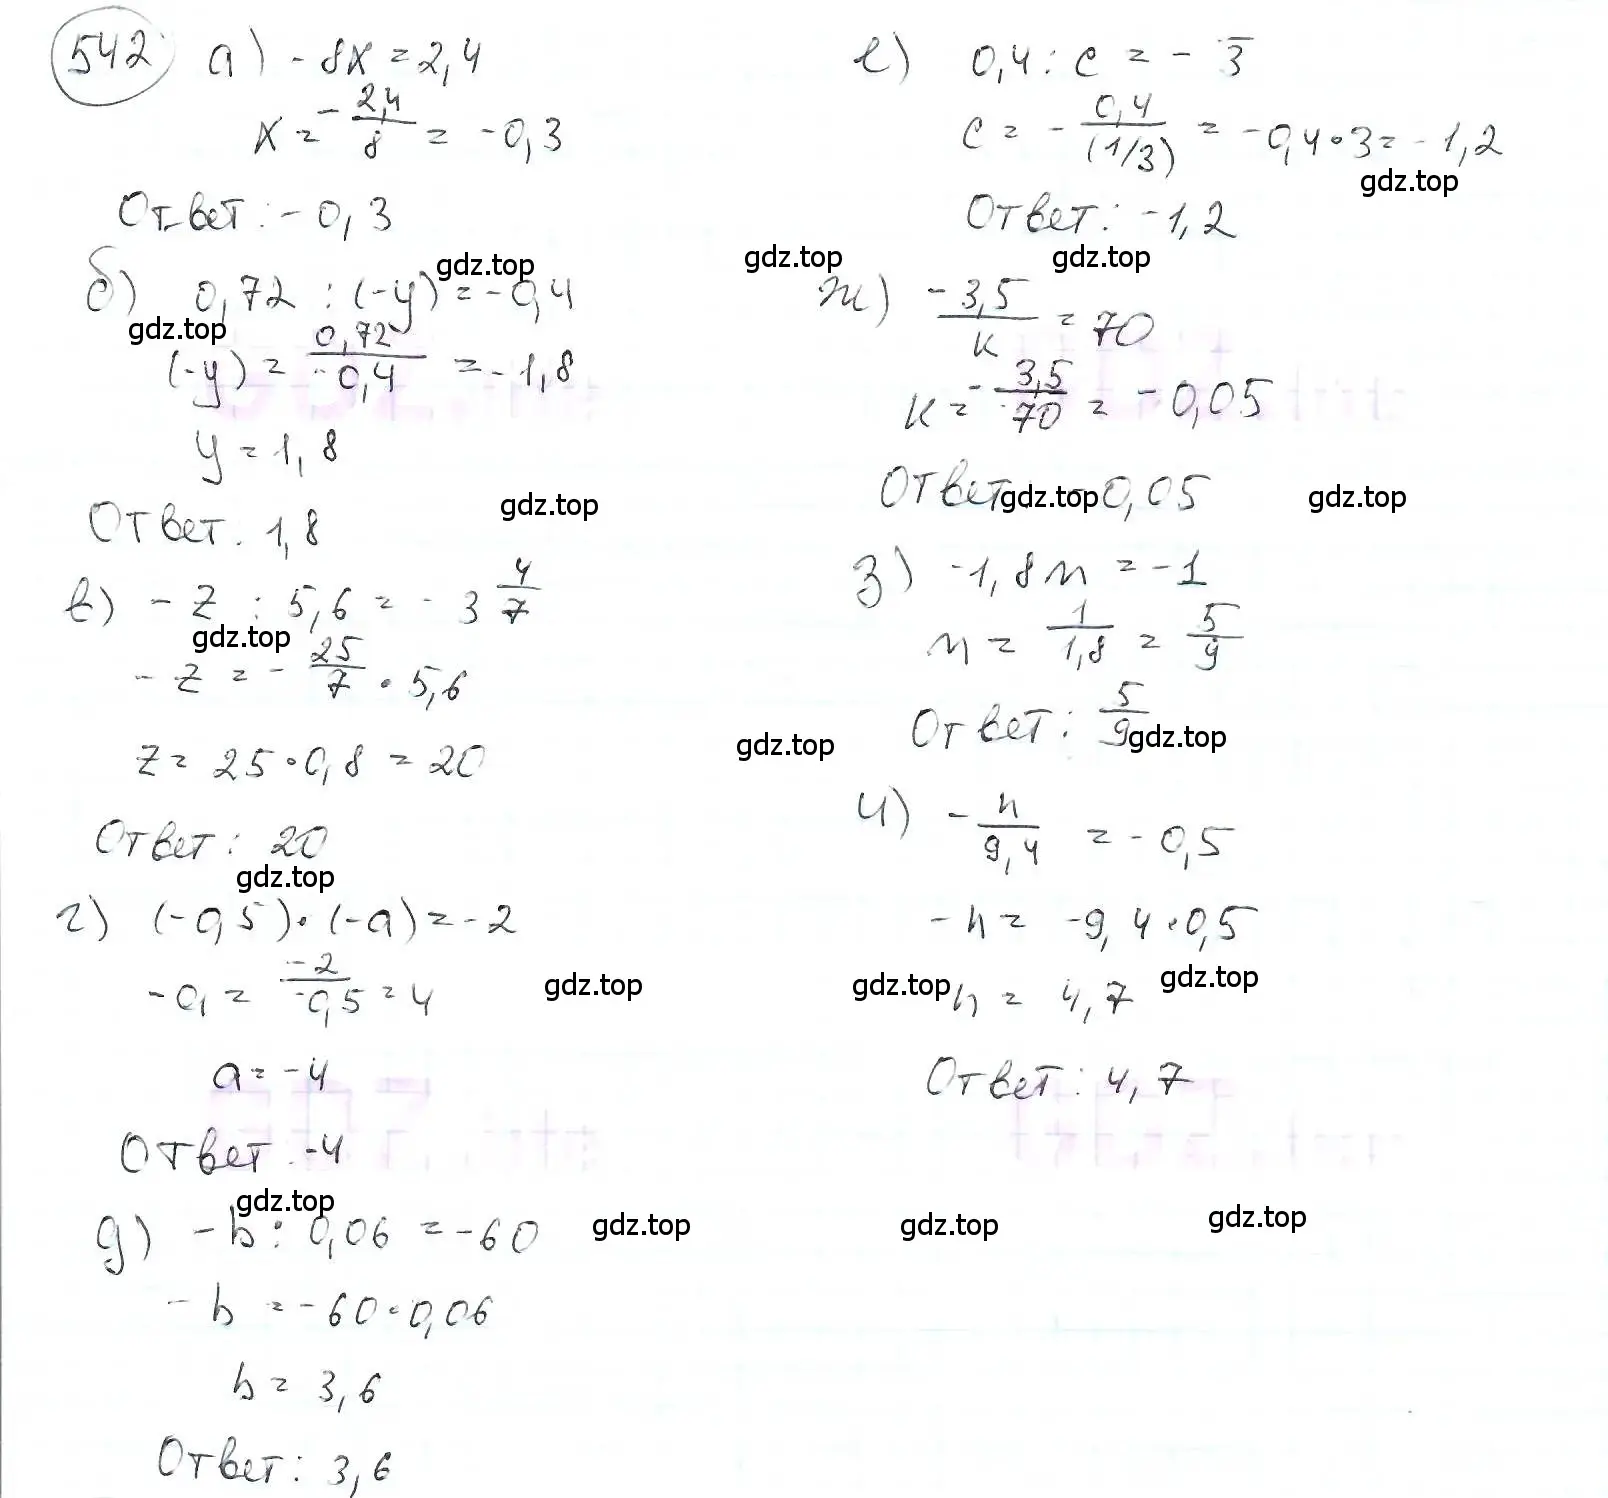 542 а) -8x = 2,4
x = - 2,4/8 = -0,3
Ответ: -0,3
gdz.top
б) 0,72 : (-y) = -0,4
gdz.top
(-y) = 0,72/-0,4 = -1,8
y = 1,8
gdz.top
Ответ. 1,8
в) -z : 5,6 = -3 4/7
gdz.top
-z = - 25/7 · 5,6
z = 25·0,8 = 20
Ответ: 20
gdz.top
г) (-0,5)·(-a) = -2
-a = -2/-0,5 = 4
gdz.top
a = -4
Ответ -4
gdz.top
д) -b : 0,06 = -60
gdz.top
-b = -60·0,06
b = 3,6
Ответ: 3,6
е) 0,4 : c = - 3
c = - 0,4/(1/3) = -0,4·3 = -1,2
gdz.top
Ответ: -1,2
gdz.top gdz.top
ж) -3,5/к = 70
к = - 3,5/70 = -0,05
Ответ -0,05
gdz.top gdz.top
з) -1,8m = -1
m = 1/1,8 = 5/9
Ответ: 5/9
gdz.top gdz.top
и) - n/9,4 = -0,5
-n = -9,4·0,5
gdz.top gdz.top
n = 4,7
Ответ: 4,7
gdz.top gdz.top